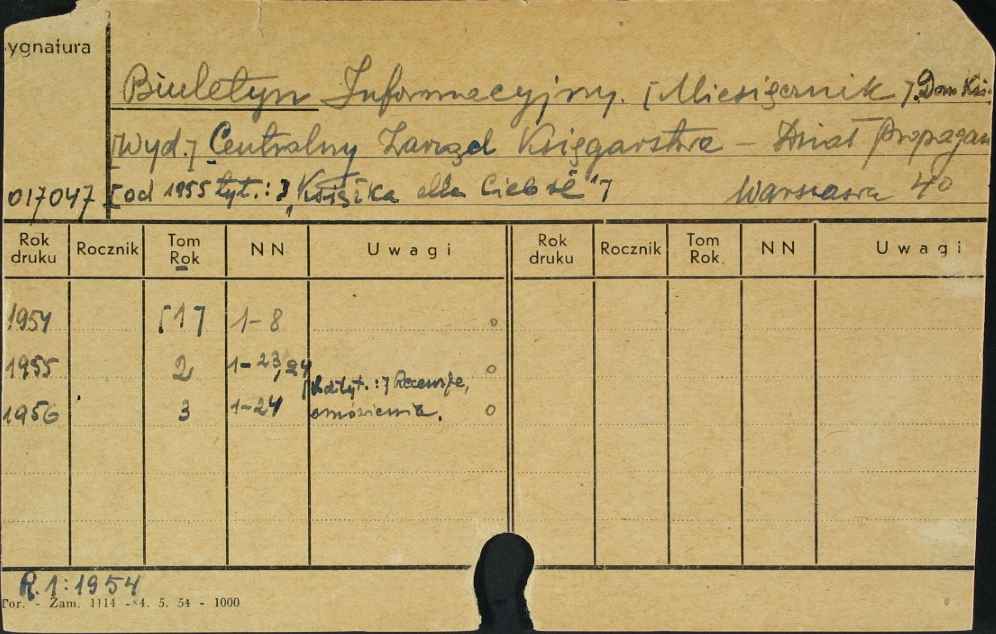 ygnatura
Biuletyn Informacyjny. [Miesięcznik]. Dom Ksi.
[Wyd.] Centralny Zarząd Księgarstwa - Dział Propagan
017047 [od 1955 tyt.:] "Książka dla Ciebie"] Warszawa 4°
Rok druku Rocznik Tom Rok NN Uwagi Rok druku Rocznik Tom Rok. NN Uwagi
1954 [1] 1-8 o
1955 2 1-23/24 o
[Podtyt.:] Recenzje,
1956 3 1-24 omówienia. o
R.1:1954
Tor. - Zam. 1114 - 4. 5. 54 - 1000